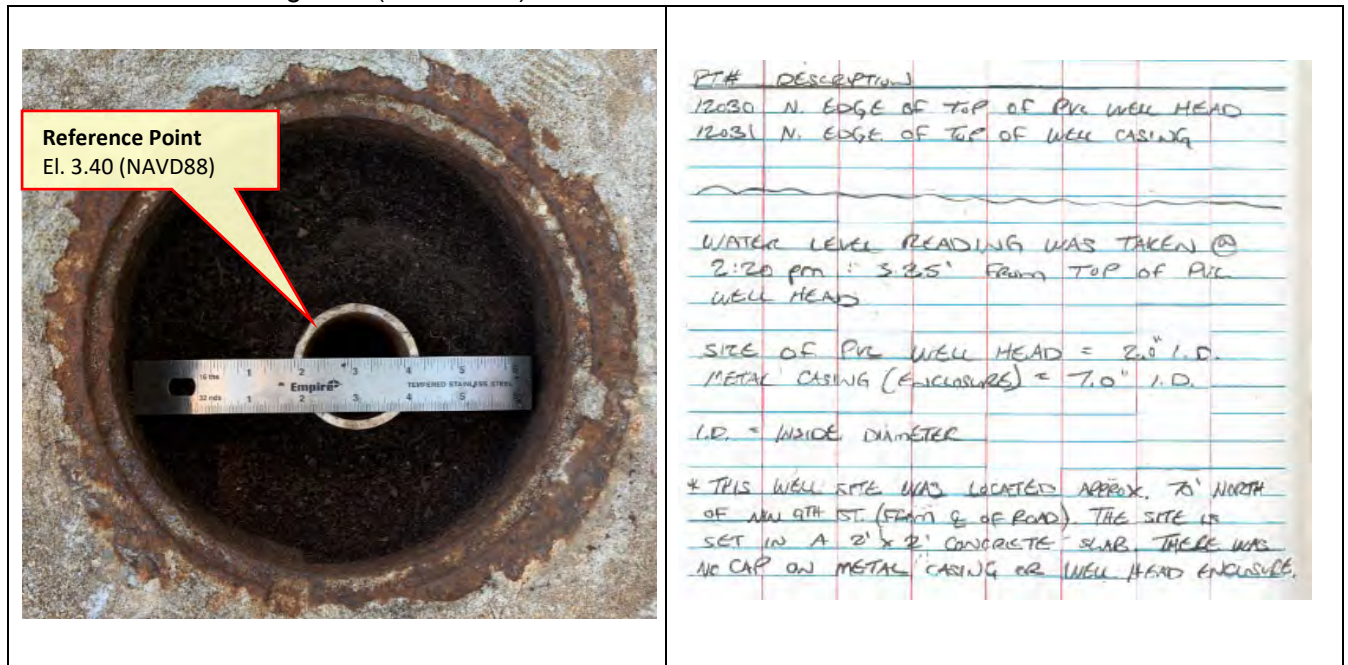 Reference Point
El. 3.40 (NAVD88)
16 ths 1 2 3 4 5 6
Empire TEMPERED STAINLESS STEEL
32 nds 1 2 3 4 5 6
PT# DESCRIPTION
12030 N. EDGE OF TOP OF PVC WELL HEAD
12031 N. EDGE OF TOP OF WELL CASING
WATER LEVEL READING WAS TAKEN @
2:20 pm : 3.25' FROM TOP OF PVC
WELL HEAD
SIZE OF PVC WELL HEAD = 2.0" I.D.
METAL CASING (ENCLOSURE) = 7.0" I.D.
I.D. = INSIDE DIAMETER
* THIS WELL SITE WAS LOCATED APPROX. 70' NORTH
OF NW 9TH ST. (FROM ℄ OF ROAD). THE SITE IS
SET IN A 2' x 2' CONCRETE SLAB. THERE WAS
NO CAP ON METAL CASING OR WELL HEAD ENCLOSURE.